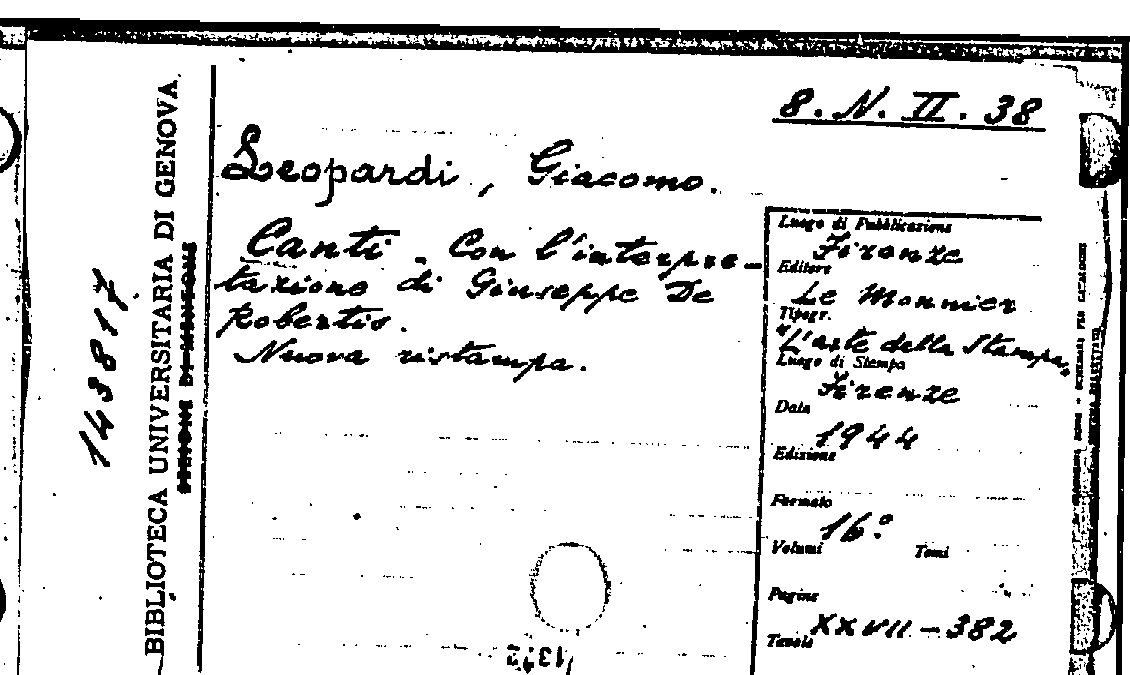 8. N. II. 38
Leopardi, Giacomo.
Canti. Con l'interpre-
tazione di Giuseppe De
Robertis.
Nuova ristampa.
Luogo di Pubblicazione
Firenze
Editore
Le Monnier
Tipogr.
"L'arte della Stampa"
Luogo di Stampa
Firenze
Data
1944
Edizione
Formato
16.°
Volumi Tomi
Pagine
XXVII-382
Tavole
143817
BIBLIOTECA UNIVERSITARIA DI GENOVA